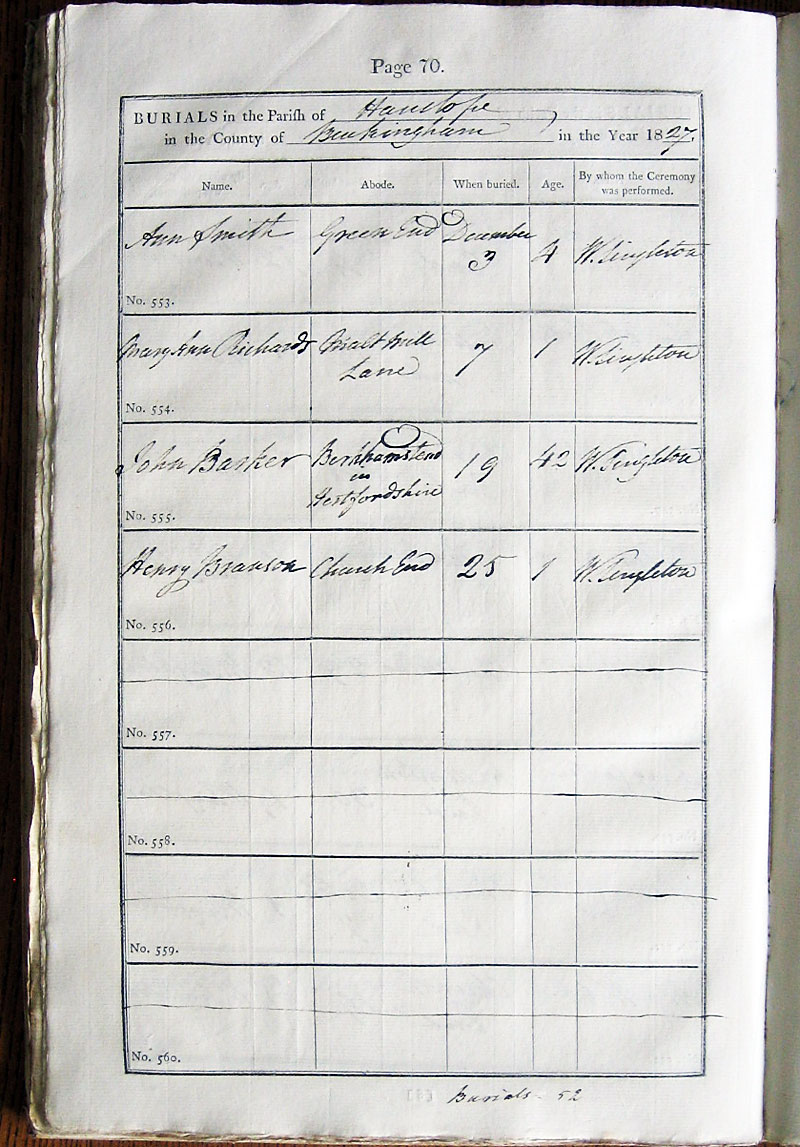 Page 70.
BURIALS in the Parish of Hanslope
in the County of Buckingham in the Year 1827.
Name. Abode. When buried. Age. By whom the Ceremony was performed.
Ann Smith Green End December 3 4 W. Singleton
No. 553.
Mary Ann Richards Malt Mill Lane 7 1 W. Singleton
No. 554.
John Barker Berkhamstead in Hertfordshire 19 42 W. Singleton
No. 555.
Henry Branson Church End 25 1 W. Singleton
No. 556.
No. 557.
No. 558.
No. 559.
No. 560.
Burials - 52